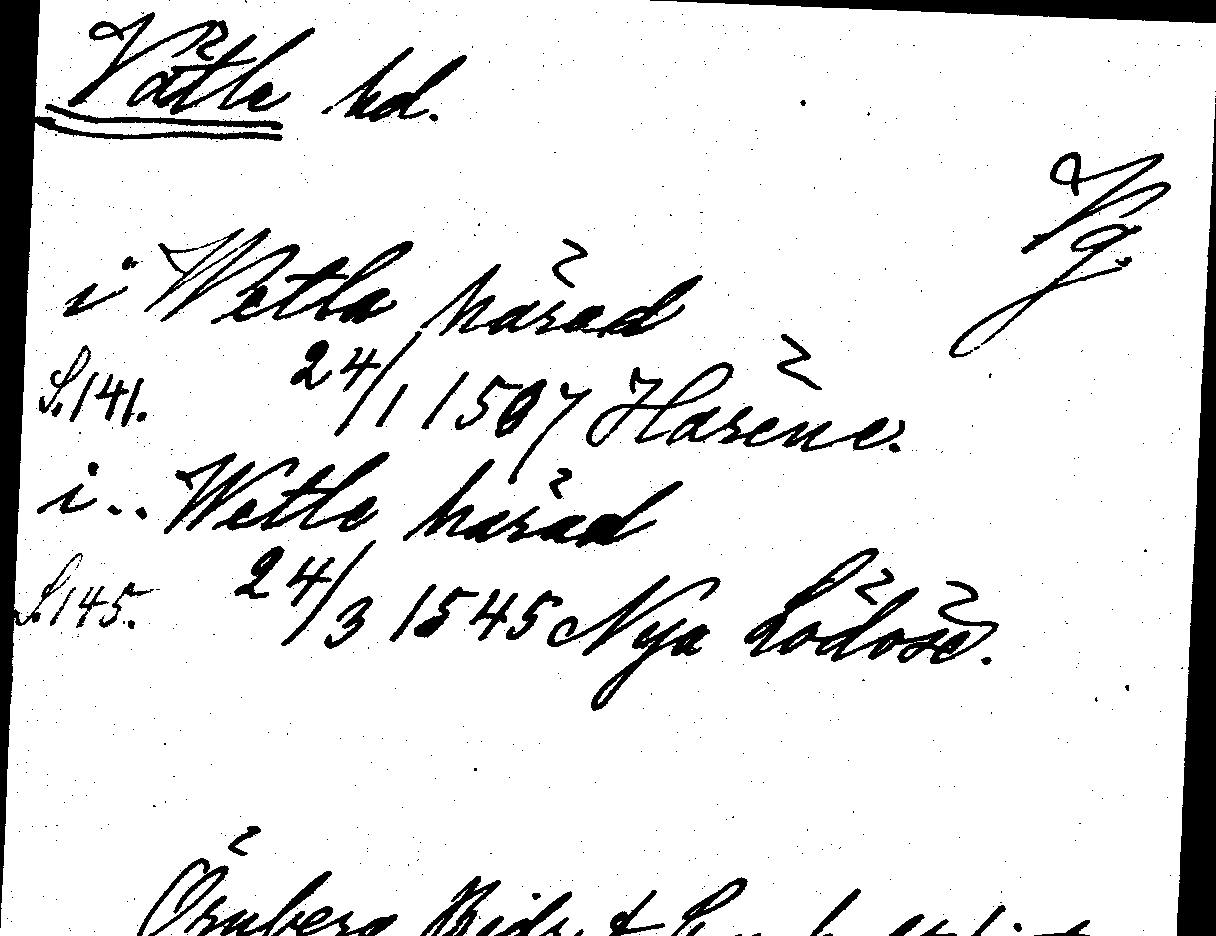 Vätle hd.
Vg.
i Wetla härad
S. 141. 24/1 1507 Häsene.
i.. Wetle härad
S. 145. 24/3 1545 Nya Lödöse.
Örnberg Bidr. t.